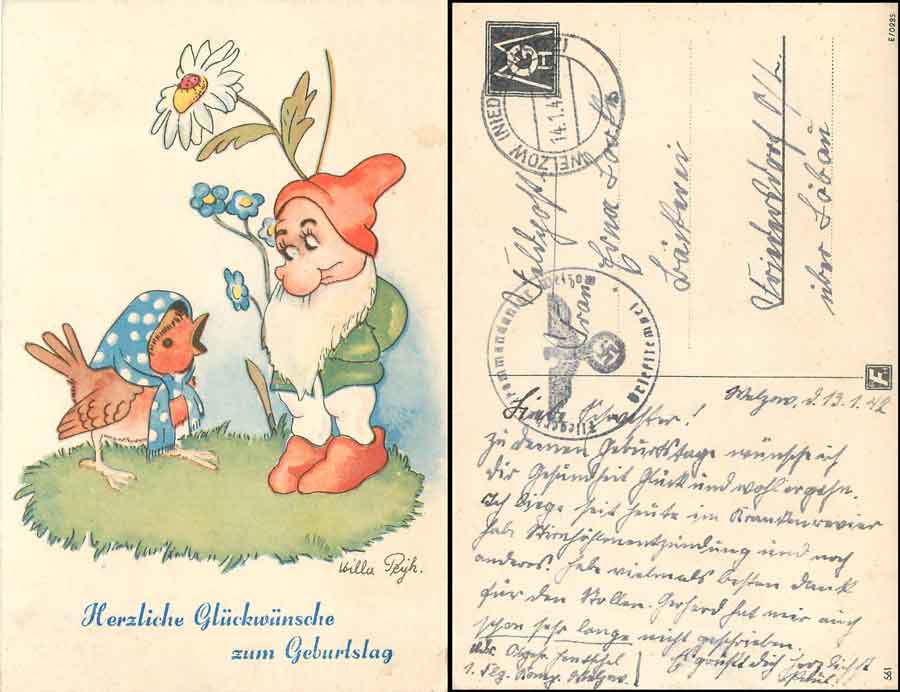 Willa Peyk.
Herzliche Glückwünsche
zum Geburtstag
E/0285
WELZOW (NIED
14.1.4
Feldpost
Frau
Erna
Bäckerei
Friedersdorf
über Löbau
Briefstempel
Welzow, d. 13.1.42
Liebe Schwester!
zu deinem Geburtstage wünsche ich
dir Gesundheit Glück und wohlergehn.
Ich liege seit heute im Krankenrevier
hab Stirnhöhlenentzündung und noch
anderes. Habe vielmals besten Dank
für den Stollen. Gerherd hat mir auch
schon sehr lange nicht geschrieben.
Es grüßt dich herzlichst
Abs.
1. Flg. Komp. Welzow.
Paul.
561